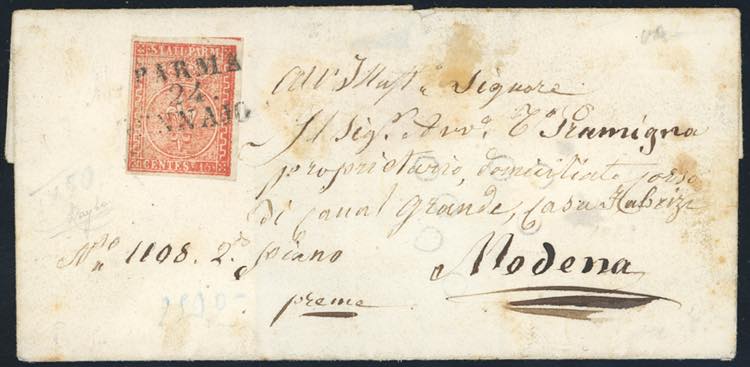 STATI PARM
PARMA
24
GENNAIO
CENTES. 15
All' Illust.e Signore
Il Sig.r Avv.o T.o Gramigna
proprietario, domiciliato corso
di Canal Grande, Casa Fabrizi
N.o 1108. 2.o piano
Modena
preme